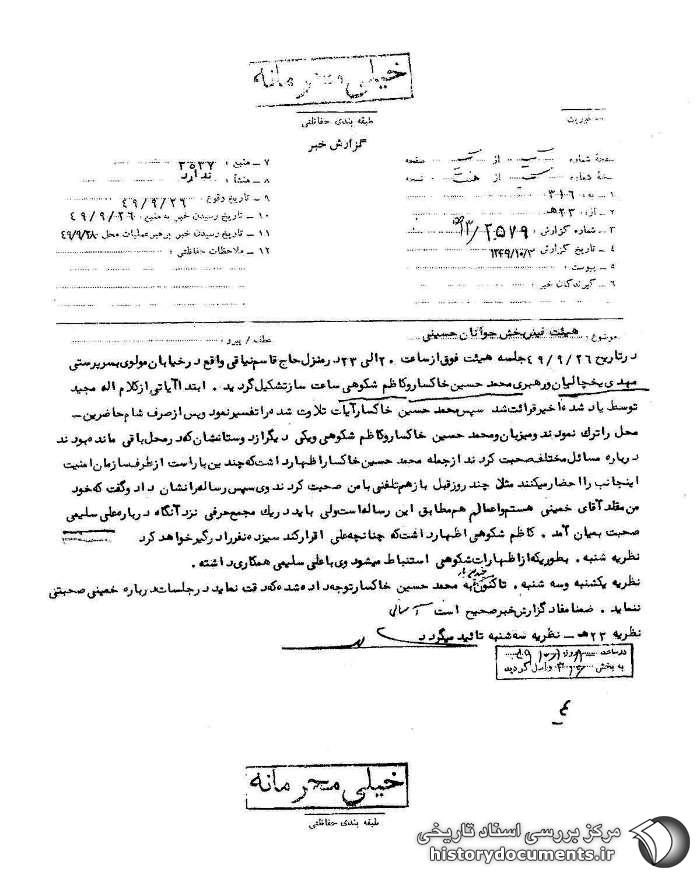 خیلی محرمانه
طبقه بندی حفاظتی
گزارش خبر
۱ ـ به : ۳۱۶
۲ ـ از : ۲۳هـ
۳ ـ شماره گزارش :
۴ ـ تاریخ گزارش ۱۳۴۹/۱۰/۳
۵ ـ پیوست :
۶ ـ گیرندگان خبر :
۷ ـ منبع : ۳۵۳۷
۸ ـ منشأ : ندارد
۹ ـ تاریخ وقوع : ۴۹/۹/۲۶
۱۰ ـ تاریخ رسیدن خبر به منبع : ۴۹/۹/۲۶
۱۱ ـ تاریخ رسیدن خبر برهبرعملیات محل ۴۹/۹/۲۸
۱۲ ـ ملاحظات حفاظتی :
موضوع : هیئت فیض بخش جوانان حسینی عطف / پیرو :
درتاریخ ۴۹/۹/۲۶ جلسه هیئت فوق ازساعت ۲۰ الی ۲۳ درمنزل حاج قاسم نباتی واقع درخیابان مولوی بسرپرستی
مهدی یخچالیان ورهبری محمد حسین خاکساروکاظم شکوهی ساعت سازتشکیل گردید . ابتدا آیاتی ازکلام اله مجید
توسط یاد شده اخیرقرائت شد سپس محمد حسین خاکسارآیات تلاوت شده راتفسیرنمود وپس ازصرف شام حاضرین ـ
محل را ترك نمودند ومیزبان ومحمد حسین خاکساروکاظم شکوهی ویکی دیگرازدوستانشان که درمحل باقی مانده بودند
درباره مسائل مختلف صحبت کردند ازجمله محمد حسین خاکساراظهارداشت که چندین باراست ازطرف سازمان امنیت
اینجانب را احضارمیکنند مثلا چند روزقبل بازهم تلفنی بامن صحبت کردند وی سپس رساله رانشان داد وگفت که خود
من مقلد آقای خمینی هستم واعمالم هم مطابق این رساله است ولی باید دریك مجمع حرفی نزد آنگاه درباره علی سلیمی
صحبت بمیان آمد . کاظم شکوهی اظهارداشت که چنانچه علی اقرارکند سیزده نفررا درگیرخواهد کرد
نظریه شنبه . بطوریکه ازاظهارات شکوهی استنباط میشود وی باعلی سلیمی همکاری داشته .
نظریه یکشنبه وسه شنبه . تاکنون چندین بار به محمد حسین خاکسارتوجه داده شده که دقت نماید درجلسات درباره خمینی صحبتی
ننماید . ضمنا مفاد گزارش خبرصحیح است
نظریه ۲۳هـ ـ نظریه سه شنبه تائید میگردد
به بخش ۳۱۶ واصل گردید
۴
خیلی محرمانه
طبقه بندی حفاظتی
مرکز بررسی اسناد تاریخی
historydocuments.ir